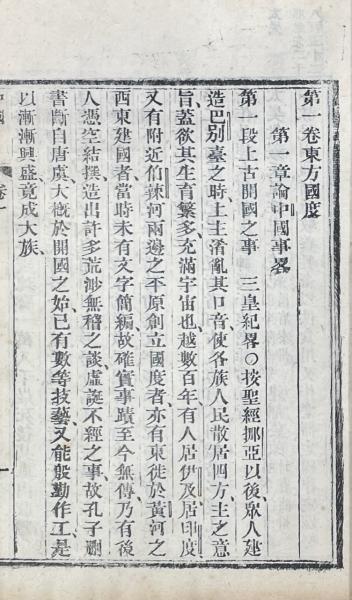 第一卷東方國度
第一章論中國事畧
第一段上古開國之事　三皇紀畧○按聖經挪亞以後、眾人建
造巴別臺之時、上主淆亂其口音、使各族人民散居四方、主之意
旨、蓋欲其生育繁多、充滿宇宙也、越數百年、有人居伊及、居印度、
又有附近伯辣河兩邊之平原創立國度者、亦有東徙於黃河之
西東建國者、當時未有文字簡編、故確實事蹟至今無傳、乃有後
人憑空結撰、造出許多荒渺無稽之談、虛誕不經之事、故孔子刪
書、斷自唐虞、大概於開國之始、已有數等技藝、又能殷勤作工、是
以漸漸興盛、竟成大族、
卷一
一